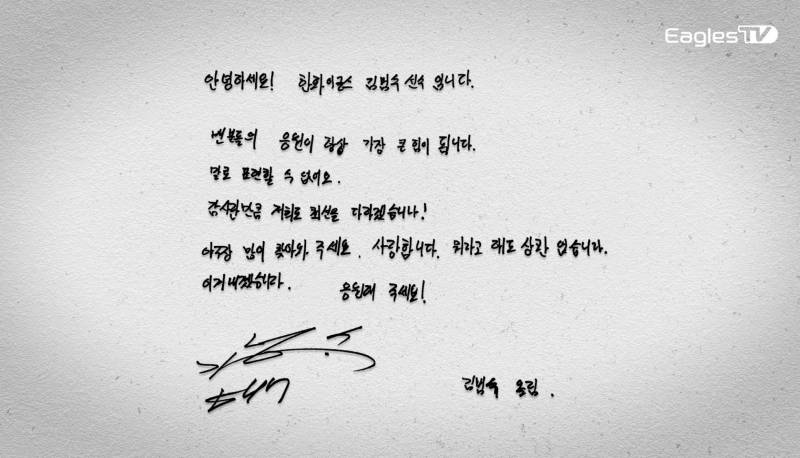 EaglesTV
안녕하세요! 한화이글스 김범수 선수 입니다.
팬분들의 응원이 항상 가장 큰 힘이 됩니다.
말로 표현할 수 없어요.
감사한만큼 저희도 최선을 다하겠습니다!
야구장 많이 찾아와 주세요. 사랑합니다. 뭐라고 해도 상관 없습니다.
이겨내겠습니다. 응원해 주세요!
김범수 올림.